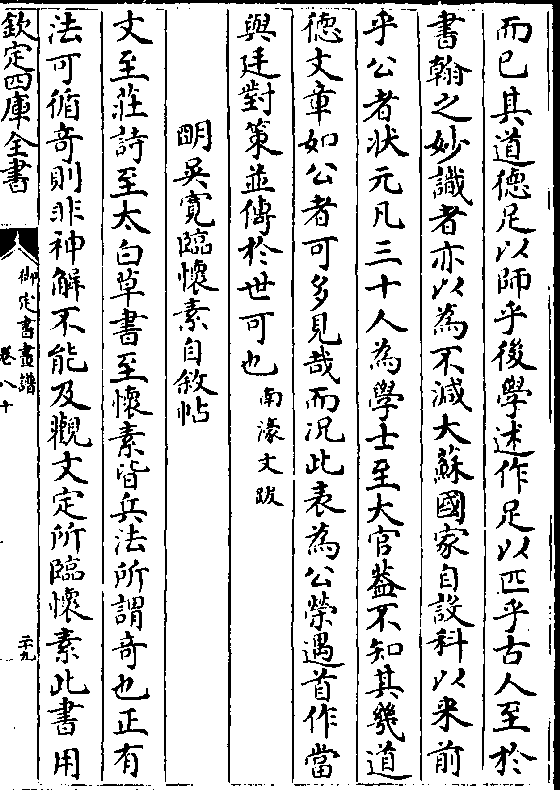 而已其道德足以師乎後學述作足以匹乎古人至於
書翰之妙識者亦以為不減大蘇國家自設科以来前
乎公者状元凡三十人為學士至大官葢不知其幾道
德文章如公者可多見哉而况此表為公榮遇首作當
與廷對策並傳於世可也南濠文跋
明吳寛臨懷素自敘帖
文至莊詩至太白草書至懷素皆兵法所謂奇也正有
法可循奇則非神解不能及觀文定所臨懷素此書用
欽定四庫全書
御定書畫譜
卷八十
二十九